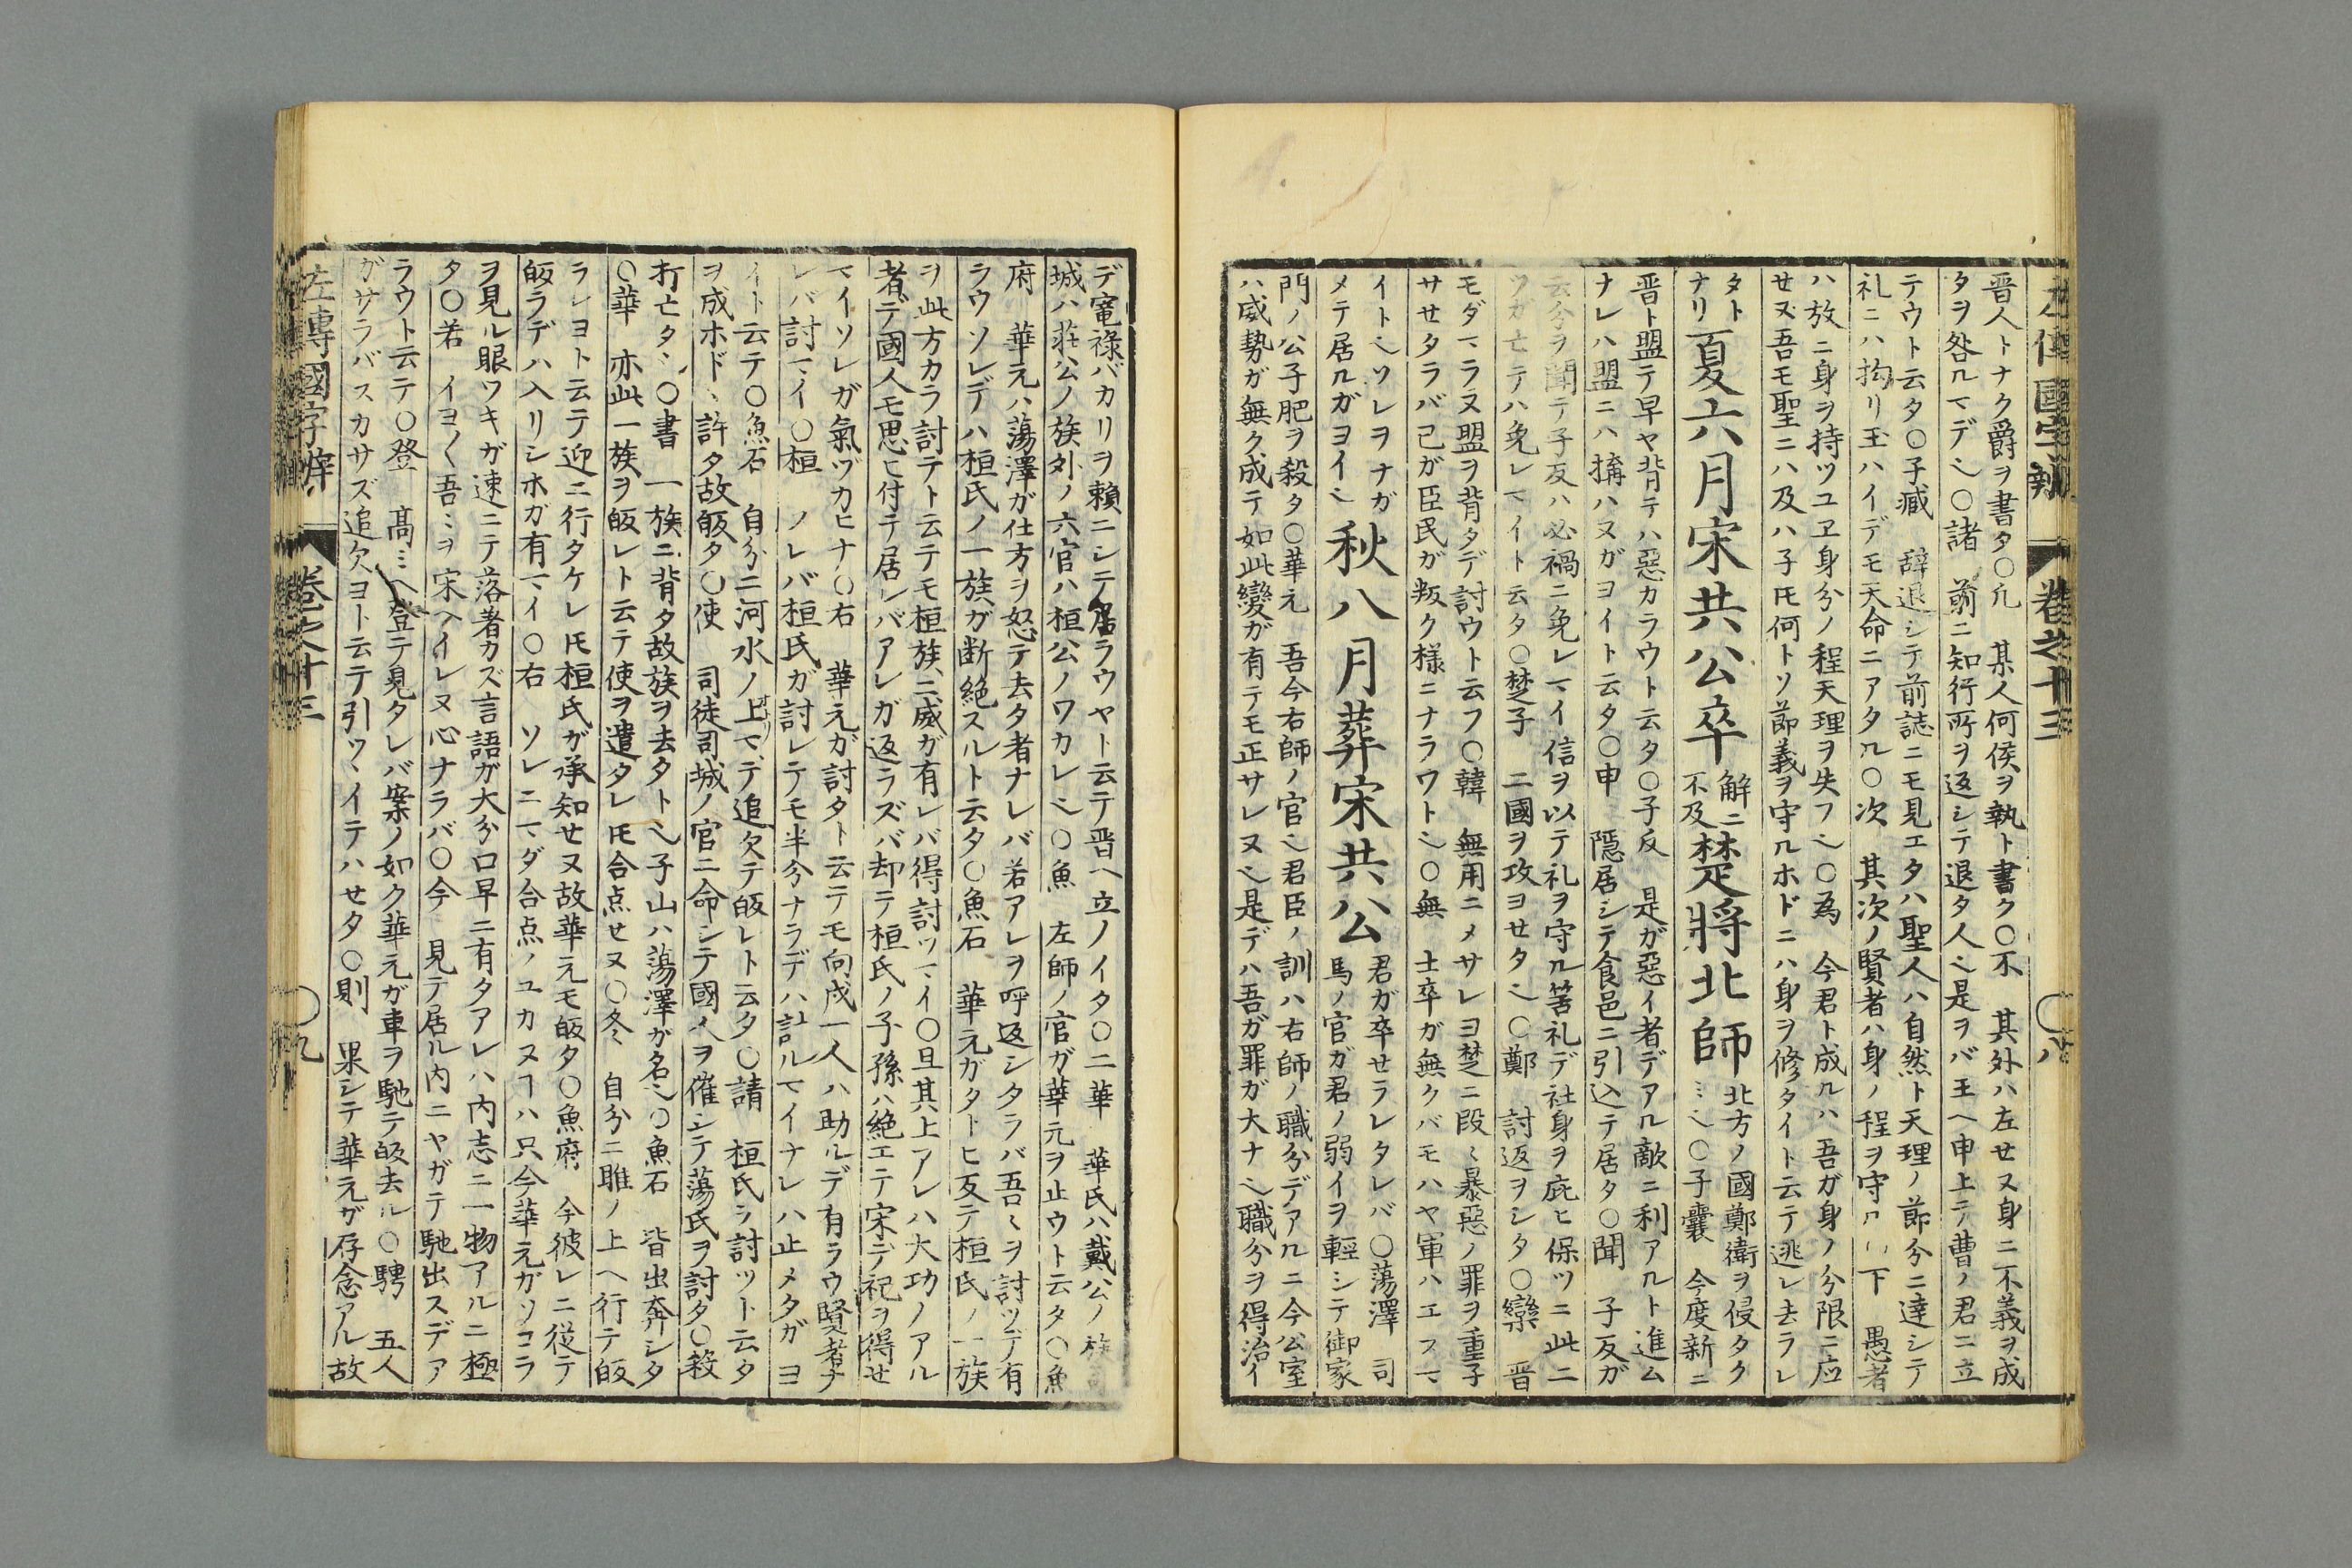 左傳國字辨 巻之十三 〇八
晋人トナク爵ヲ書タ〇凡 某人何侯ヲ執ト書ク〇不 其外ハ左セヌ身ニ不義ヲ成
タヲ咎ルマデ〻〇諸 前ニ知行所ヲ返シテ退タ人〻是ヲバ王ヘ申上テ曹ノ君ニ立
テウト云タ〇子臧 辞退シテ前誌ニモ見エタハ聖人ハ自然ト天理ノ節分ニ達シテ
礼ニハ拘リ玉ハイデモ天命ニアタル〇次 其次ノ賢者ハ身ノ程ヲ守ル 下 愚者
ハ放ニ身ヲ持ツユヱ身分ノ程天理ヲ失フ〻〇為 今君ト成ルハ吾ガ身ノ分限ニ応
セヌ吾モ聖ニハ及ハ子𪜈何トソ節義ヲ守ルホドニハ身ヲ修タイト云テ逃レ去ラレ
タト
ナリ
夏六月宋共公卒
解ニ
不及
楚將北師
北方ノ國鄭衛ヲ侵タク
〻〇子囊 今度新ニ
晋ト盟テ早ヤ背テハ惡カラウト云タ〇子反 是ガ惡イ者デアル敵ニ利アルト進ム
ナレハ盟ニハ搆ハヌガヨイト云タ〇申 隠居シテ食邑ニ引込テ居タ〇聞 子反ガ
云分ヲ聞テ子反ハ必禍ニ免レマイ信ヲ以テ礼ヲ守ル筈礼デ社身ヲ庇ヒ保ツニ此二
ツカ亡テハ免レマイト云タ〇楚子 二國ヲ攻ヨセタ〻〇鄭 討返ヲシタ〇欒 晋
モダマラヌ盟ヲ背タデ討ウト云フ〇韓 無用ニメサレヨ楚ニ段〻暴惡ノ罪ヲ重子
サセタラバ己ガ臣民ガ叛ク様ニナラワト〻〇無 士卒ガ無クバモハヤ軍ハエフマ
イト〻ソレヲナガ
メテ居ルガヨイ〻
秋八月葬宋共公
君ガ卒セラレタレバ〇蕩澤 司
馬ノ官ガ君ノ弱イヲ輕シテ御家
門ノ公子肥ヲ殺タ〇華元 吾今右師ノ官〻君臣ノ訓ハ右師ノ職分デアルニ今公室
ハ威勢ガ無ク成テ如此變ガ有テモ正サレヌ〻是デハ吾ガ罪ガ大ナ〻職分ヲ得治イ
デ寵祿バカリヲ賴ニシテ居ラウヤト云テ晋ヘ立ノイタ〇二華 華氏ハ戴公ノ族
城ハ莊公ノ族外ノ六官ハ桓公ノワカレ〻〇魚 左師ノ官ガ華元ヲ止ウト云タ〇魚
府 華元ハ蕩澤ガ仕方ヲ怒テ去タ者ナレバ若アレヲ呼返シタラバ吾〻ヲ討ツデ有
ラウソレデハ桓氏ノ一族ガ断絶スルト云タ〇魚石 華元ガタトヒ反テ桓氏ノ一族
ヲ此方カラ討テト云テモ桓族ニ威ガ有レバ得討ツマイ〇且其上アレハ大功ノアル
者デ國人モ思ヒ付テ居レバアレガ返ラズバ却テ桓氏ノ子孫ハ絶エテ宋デ祀ヲ得セ
マイソレガ氣ヅカヒナ〇右 華元ガ討タト云テモ向戌一人ハ助ルデ有ラウ賢者ナ
レバ討マイ〇桓 ノレバ桓氏ガ討レテモ半分ナラデハ討ルマイナレハ止メタガヨ
イト云テ〇魚石 自分ニ河水ノ上マデ追欠テ皈レト云タ〇請 桓氏ヲ討ツト云タ
ヲ成ホド〻許タ故皈タ〇使 司徒司城ノ官ニ命シテ國人ヲ催シテ蕩氏ヲ討タ〇殺
打亡タ〻〇書 一族ニ背タ故族ヲ去タト〻子山ハ蕩澤ガ名〻〇魚石 皆出奔シタ
〇華 亦此一族ヲ皈レト云テ使ヲ遣タレ𪜈合点セヌ〇冬 自分ニ睢ノ上ヘ行テ皈
ラレヨト云テ迎ニ行タケレ𪜈桓氏ガ承知セヌ故華元モ皈タ〇魚府 今彼レニ従テ
皈ラデハ入リシホガ有マイ〇右 ソレニマダ合点ノユカヌヿハ只今華元ガソコラ
ヲ見ル眼ツキガ速ニテ落者カズ言語ガ大分口早ニ有タアレハ内志ニ一物アルニ極
タ〇若 イヨ〱吾〻ヲ宋ヘイレヌ心ナラバ〇今 見テ居ル内ニヤガテ馳出スデア
ラウト云テ〇登 髙〻ヘ登テ見タレバ案ノ如ク華元ガ車ヲ馳テ皈去ル〇騁 五人
ガサラバスカサズ追欠ヨト云テ引ツ〻イテハセタ〇則 果シテ華元ガ存念アル故
左傳國字辨 巻之十三 〇九